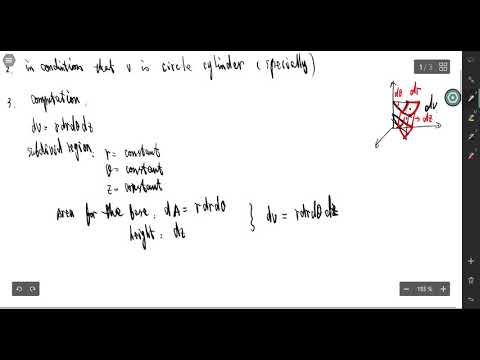 2. in condition that v is circle cylinder (specially)
3. computation.
dv = rdrdθdz
subdivied region: r = constant
θ = constant
z = constant
Area for the base: dA = rdrdθ
height: dz
} dv = rdrdθdz
dθ dr
dv
dz
1 / 3
155 %